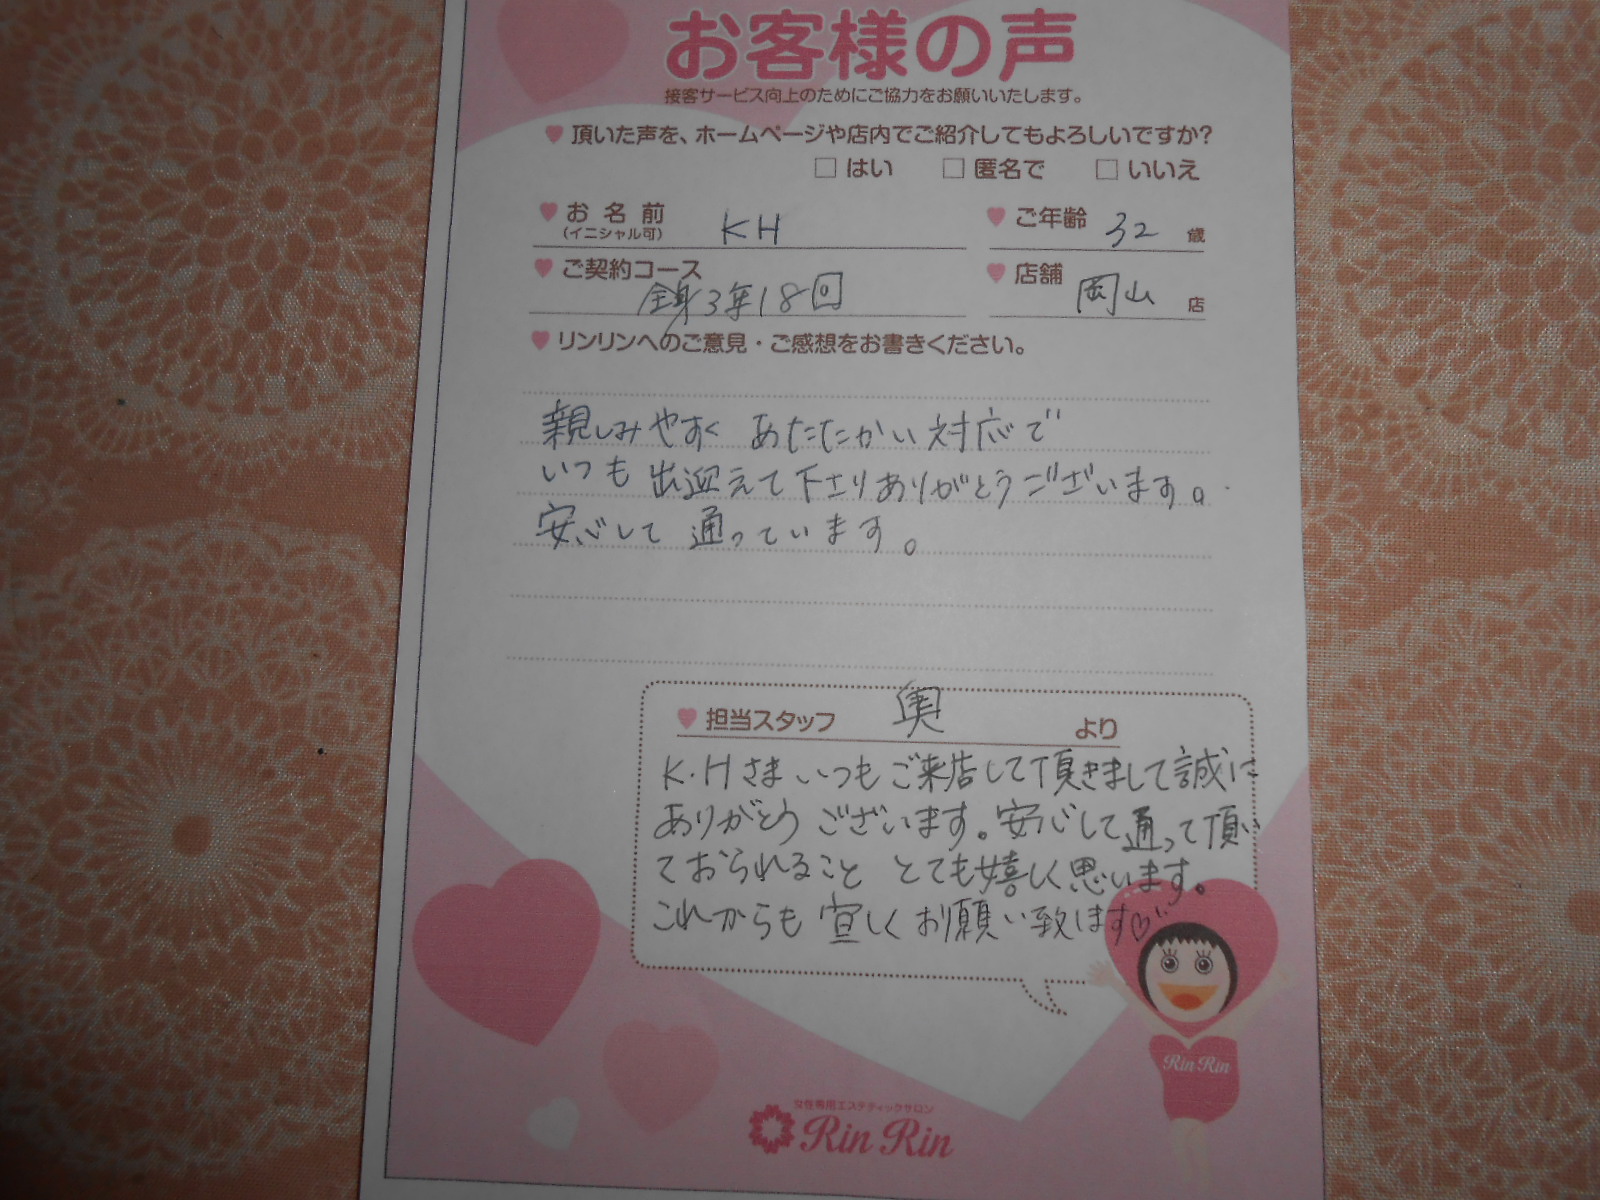 お客様の声
接客サービス向上のためにご協力をお願いいたします。
頂いた声を、ホームページや店内でご紹介してもよろしいですか?
□ はい □ 匿名で □ いいえ
お名前 KH ご年齢 32 歳
(イニシャル可)
ご契約コース 店舗 岡山 店
全身3年18回
リンリンへのご意見・ご感想をお書きください。
親しみやすく あたたかい対応で
いつも出迎えて下さりありがとうございます。
安心して通っています。
担当スタッフ 奥 より
K.Hさまいつもご来店して頂きまして誠に
ありがとうございます。安心して通って頂い
ておられること とても嬉しく思います。
これからも宜しくお願い致します♡
Rin Rin
女性専用エステティックサロン
Rin Rin